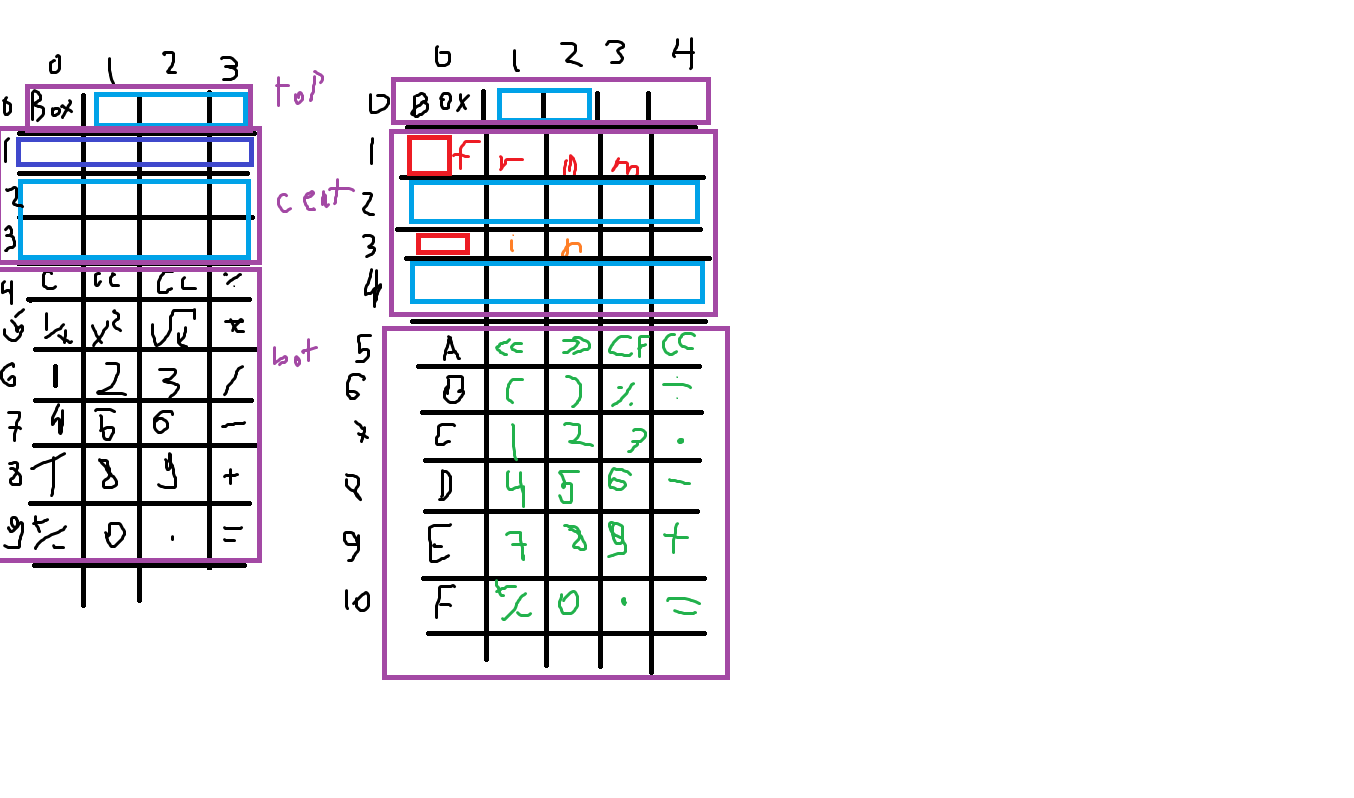 0 1 2 3
0 Box
top
1
2
cent
3
4 C CC
5 1/x x² √x
bot
6 1 2 3 /
7 4 5 6 -
8 7 8 9 +
9 +/- 0 . =
0 1 2 3 4
0 BOX
1 F r o m
2
3 i n
4
5 A << >> CF CC
6 B ( ) % ÷
7 C 1 2 3 .
8 D 4 5 6 -
9 E 7 8 9 +
10 F +/- 0 . =